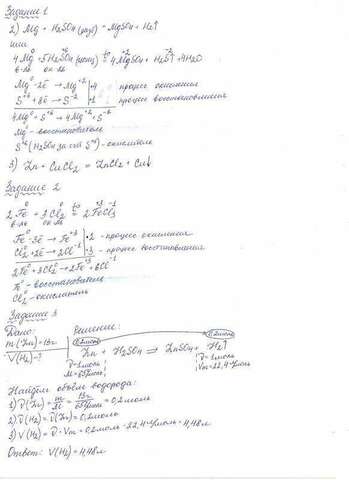 Задание 1
2) Mg + H₂SO₄ (разб) = MgSO₄ + H₂↑
или
4Mg⁰ + 5H₂S⁺⁶O₄ (конц) t⁰= 4Mg⁺²SO₄ + H₂S⁻²↑ + 4H₂O
в-ль ок-ль
Mg⁰ - 2ē → Mg⁺² | 4 процесс окисления
S⁺⁶ + 8ē → S⁻² | 1 процесс восстановления
4Mg⁰ + S⁺⁶ → 4Mg⁺² + S⁻²
Mg⁰ - восстановитель
S⁺⁶ (H₂SO₄ за счёт S⁺⁶) - окислитель
3) Zn + CuCl₂ = ZnCl₂ + Cu↓
Задание 2
2Fe⁰ + 3Cl₂⁰ t⁰= 2Fe⁺³Cl₃⁻¹
в-ль ок-ль
Fe⁰ - 3ē → Fe⁺³ | 2 - процесс окисления
Cl₂⁰ + 2ē → 2Cl⁻¹ | 3 - процесс восстановления
2Fe⁰ + 3Cl₂⁰ → 2Fe⁺³ + 6Cl⁻¹
Fe⁰ - восстановитель
Cl₂⁰ - окислитель
Задание 3
Дано: Решение:
m(Zn) = 13г
V(H₂) - ?
0,2моль 0,2моль
Zn + H₂SO₄ = ZnSO₄ + H₂↑
ν = 1моль; ν = 1моль;
M = 65г/моль; Vm = 22,4 л/моль
Найдём объём водорода:
1) ν(Zn) = m/M = 13г/65г/моль = 0,2моль
2) ν(H₂) = ν(Zn) = 0,2моль
3) V(H₂) = ν · Vm = 0,2моль · 22,4л/моль = 4,48л
Ответ: V(H₂) = 4,48л